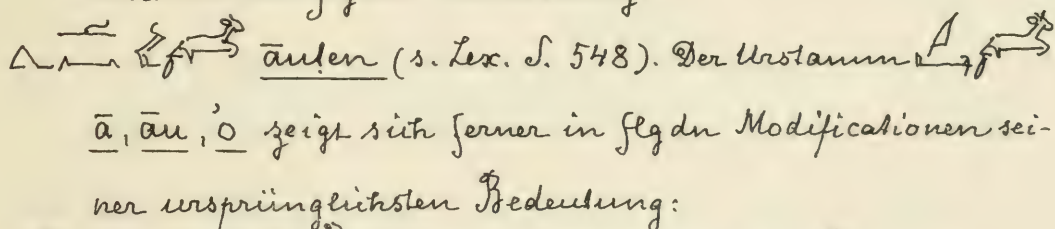 āuṭen (s. Lex. S. 548). Der Urstamm
ā, āu, ʾo zeigt sich ferner in flgdn Modificationen sei-
ner ursprünglichsten Bedeutung: